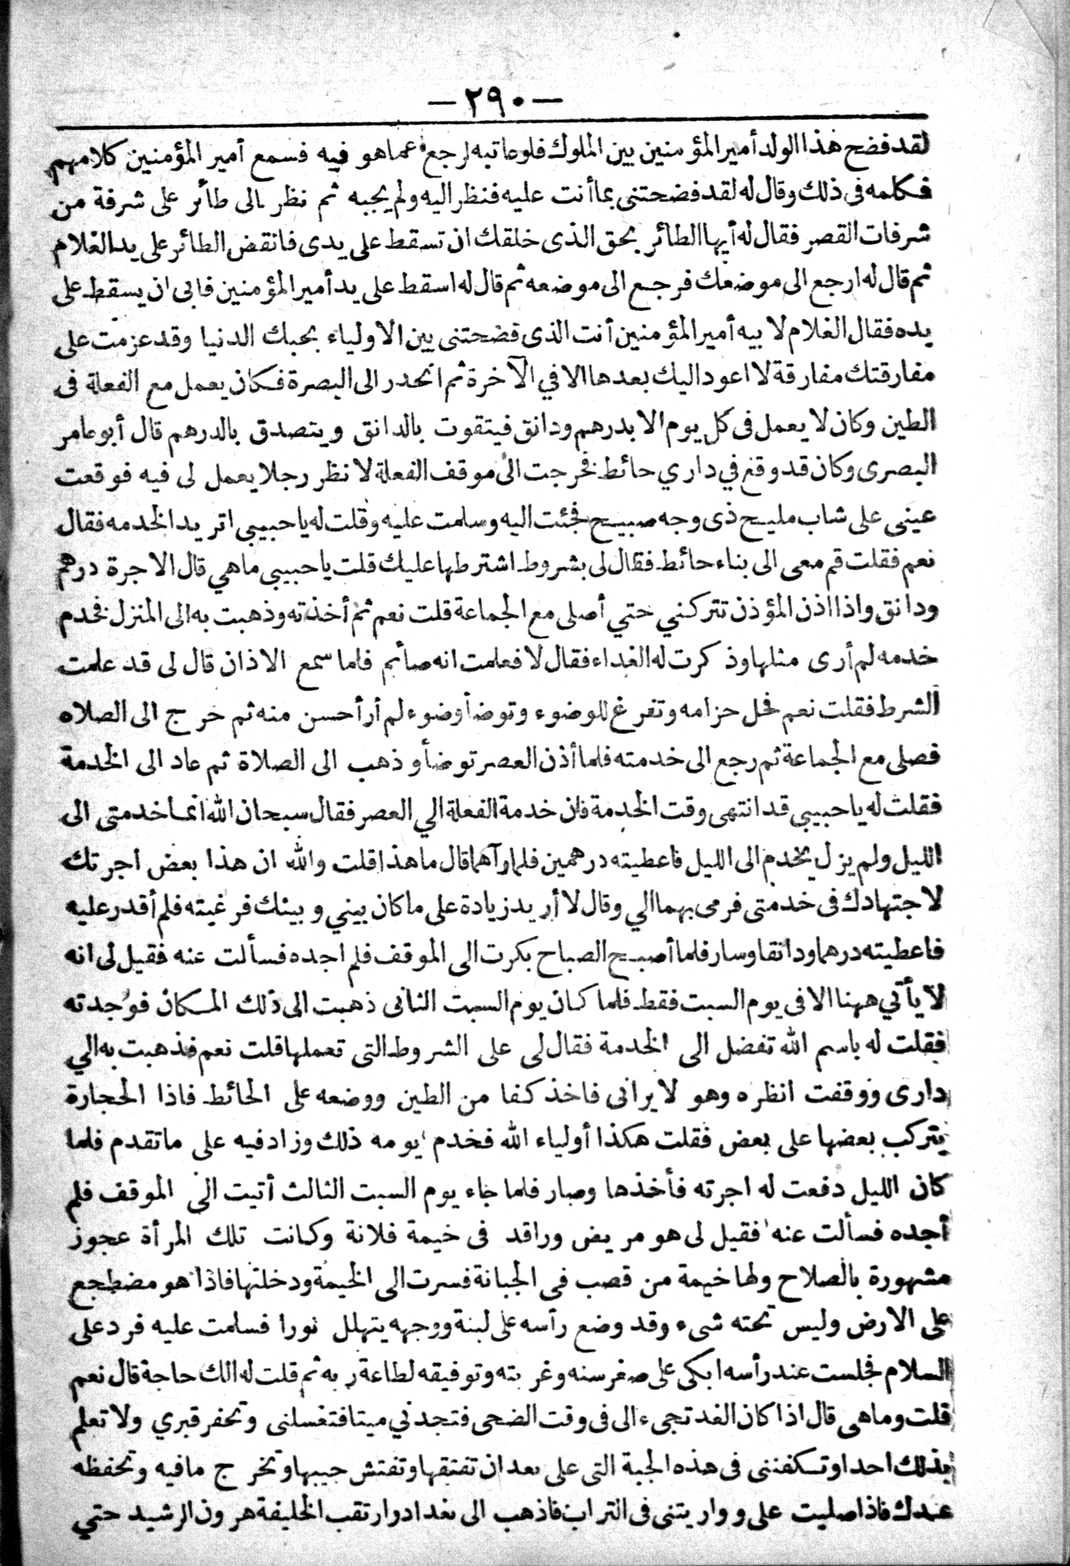 — ٢٩٠ —
لقد فضح هذا الولد أمير المؤمنين بين الملوك فلو عاتبه لرجع عما هو فيه فسمع أمير المؤمنين كلامهم
فكلمه فى ذلك وقال له لقد فضحتنى بما أنت عليه فنظر اليه ولم يجبه ثم نظر الى طائر على شرفة من
شرفات القصر فقال له أيها الطائر بحق الذى خلقك ان تسقط على يدى فانقض الطائر على يد الغلام
ثم قال له ارجع الى موضعك فرجع الى موضعه ثم قال له اسقط على يد أمير المؤمنين فابى ان يسقط على
يده فقال الغلام لابيه أمير المؤمنين أنت الذى فضحتنى بين الاولياء بحبك الدنيا وقد عزمت على
مفارقتك مفارقة لا اعود اليك بعدها الا في الآخرة ثم انحدر الى البصرة فكان يعمل مع الفعلة فى
الطين وكان لا يعمل فى كل يوم الا بدرهم ودانق فيتقوت بالدانق ويتصدق بالدرهم قال أبو عامر
البصرى وكان قد وقع في داري حائط فخرجت الى موقف الفعلة لانظر رجلا يعمل لى فيه فوقعت
عينى على شاب مليح ذى وجه صبيح فجئت اليه وسلمت عليه وقلت له ياحبيبي اتريد الخدمه فقال
نعم فقلت قم معى الى بناء حائط فقال لى بشروط اشترطها عليك قلت ياحبيبي ماهي قال الاجرة درهم
ودانق واذا اذن المؤذن تتركني حتي أصلى مع الجماعة قلت نعم ثم أخذته وذهبت به الى المنزل فخدم
خدمه لم أرى مثلها وذكرت له الغداء فقال لا فعلمت انه صائم فلما سمع الاذان قال لى قد علمت
الشرط فقلت نعم فحل حزامه وتفرغ للوضوء وتوضأ وضوء لم أر أحسن منه ثم خرج الى الصلاه
فصلى مع الجماعة ثم رجع الى خدمته فلما أذن العصر توضأ وذهب الى الصلاة ثم عاد الى الخدمة
فقلت له ياحبيبي قد انتهى وقت الخدمة فان خدمة الفعلة الي العصر فقال سبحان الله انما خدمتى الى
الليل ولم يزل يخدم الى الليل فاعطيته درهمين فلما رآهما قال ماهذا قلت والله ان هذا بعض اجرتك
لاجتهادك فى خدمتى فرمى بهما الي وقال لا أريد زيادة على ما كان بيني وبينك فرغبته فلم أقدر عليه
فاعطيته درهما ودانقا وسار فلما أصبح الصباح بكرت الى الموقف فلم اجده فسألت عنه فقيل لى انه
لا يأتي ههنا الا فى يوم السبت فقط فلما كان يوم السبت الثانى ذهبت الى ذلك المكان فوجدته
فقلت له باسم الله تفضل الى الخدمة فقال لى على الشروط التى تعملها قلت نعم فذهبت به الي
دارى ووقفت انظره وهو لا يرانى فاخذ كفا من الطين ووضعه على الحائط فاذا الحجارة
يتركب بعضها على بعض فقلت هكذا أولياء الله فخدم يومه ذلك وزاد فيه على ماتقدم فلما
كان الليل دفعت له اجرته فأخذها وصار فلما جاء يوم السبت الثالث أتيت الى الموقف فلم
أجده فسألت عنه فقيل لى هو مريض وراقد فى خيمة فلانة وكانت تلك المرأة عجوز
مشهورة بالصلاح ولها خيمة من قصب فى الجبانة فسرت الى الخيمة ودخلتها فاذا هو مضطجع
على الارض وليس تحته شىء وقد وضع رأسه على لبنة ووجهه يتهلل نورا فسلمت عليه فرد على
السلام فجلست عند رأسه ابكى على صغر سنه وغربته وتوفيقه لطاعة ربه ثم قلت له الك حاجة قال نعم
قلت وماهى قال اذا كان الغد تجىء الى فى وقت الضحى فتجدني ميتا فتغسلنى وتحفر قبري ولا تعلم
بذلك احدا وتكفننى فى هذه الجبة التى على بعد ان تفتقها وتفتش جيبها وتخرج مافيه وتحفظه
عندك فاذا صليت على وواريتنى فى التراب فاذهب الى بغداد وارتقب الخليفة هرون الرشيد حتي